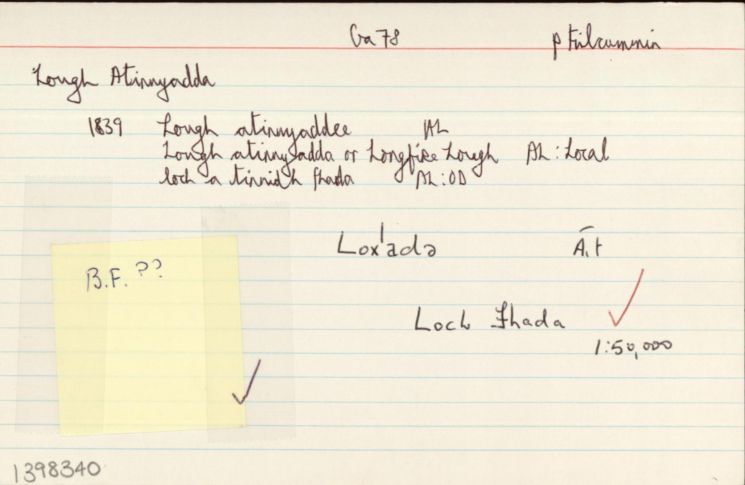 Ga 78 p Kilcummin
Lough Atinnyadda
1839 Lough atinnyaddee AL
Lough atinnyadda or Longfire Lough AL: Local
loch a tinnidh fhada AL: OD
Lox'adə Á.t
Loch Fhada
1:50,000
B.F. ??
1398340